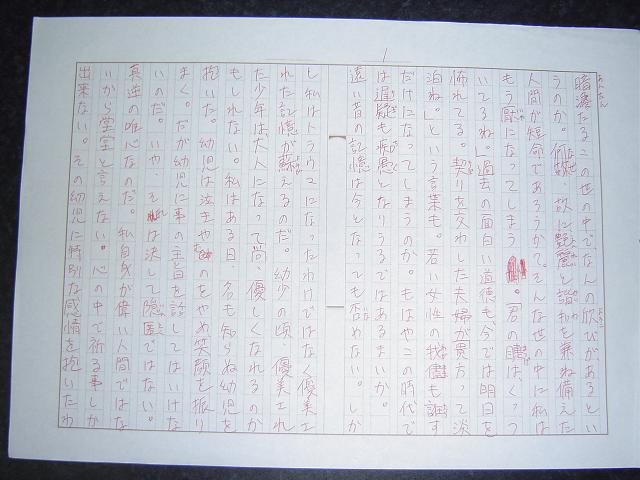 1
暗澹たるこの世の中で、なんの欣びがあるとい
あんたん
うのか。何故、故に艶麗と諧和を兼ね備えた
人間が短命であろうか?そんな世の中に私は
もう厭になってしまう 。君の瞳は、くっつ
いてるね。」過去の面白い道徳も、今では明日を
怖れてる。契りを交わした夫婦が貴方って淡
泊ね。」という言葉も。若い女性の我儘も許す
だけになってしまうのか。もはやこの時代で
は遅疑も疾患となりうるではあるまいか。
遠い昔の記憶は今となっても否めない。しか
し私はトラウマになったわけではなく優美さ
れた記憶が蘇えるのだ。幼少の頃、優美され
た少年は大人になって尚、優しくなれるのか
もしれない。私はある日、名も知らぬ幼児を
抱いた。幼児は泣きやむのをやめ笑顔を振り
まく。だが幼児に事の主旨を話してはいけな
いのだ。いや、それは決して隠匿ではない。
真逆の唯心なのだ。私自身が偉い人間ではな
いから堂々と言えない。心の中で祈る事しか
出来ない。その幼児に特別な感情を抱いたわ